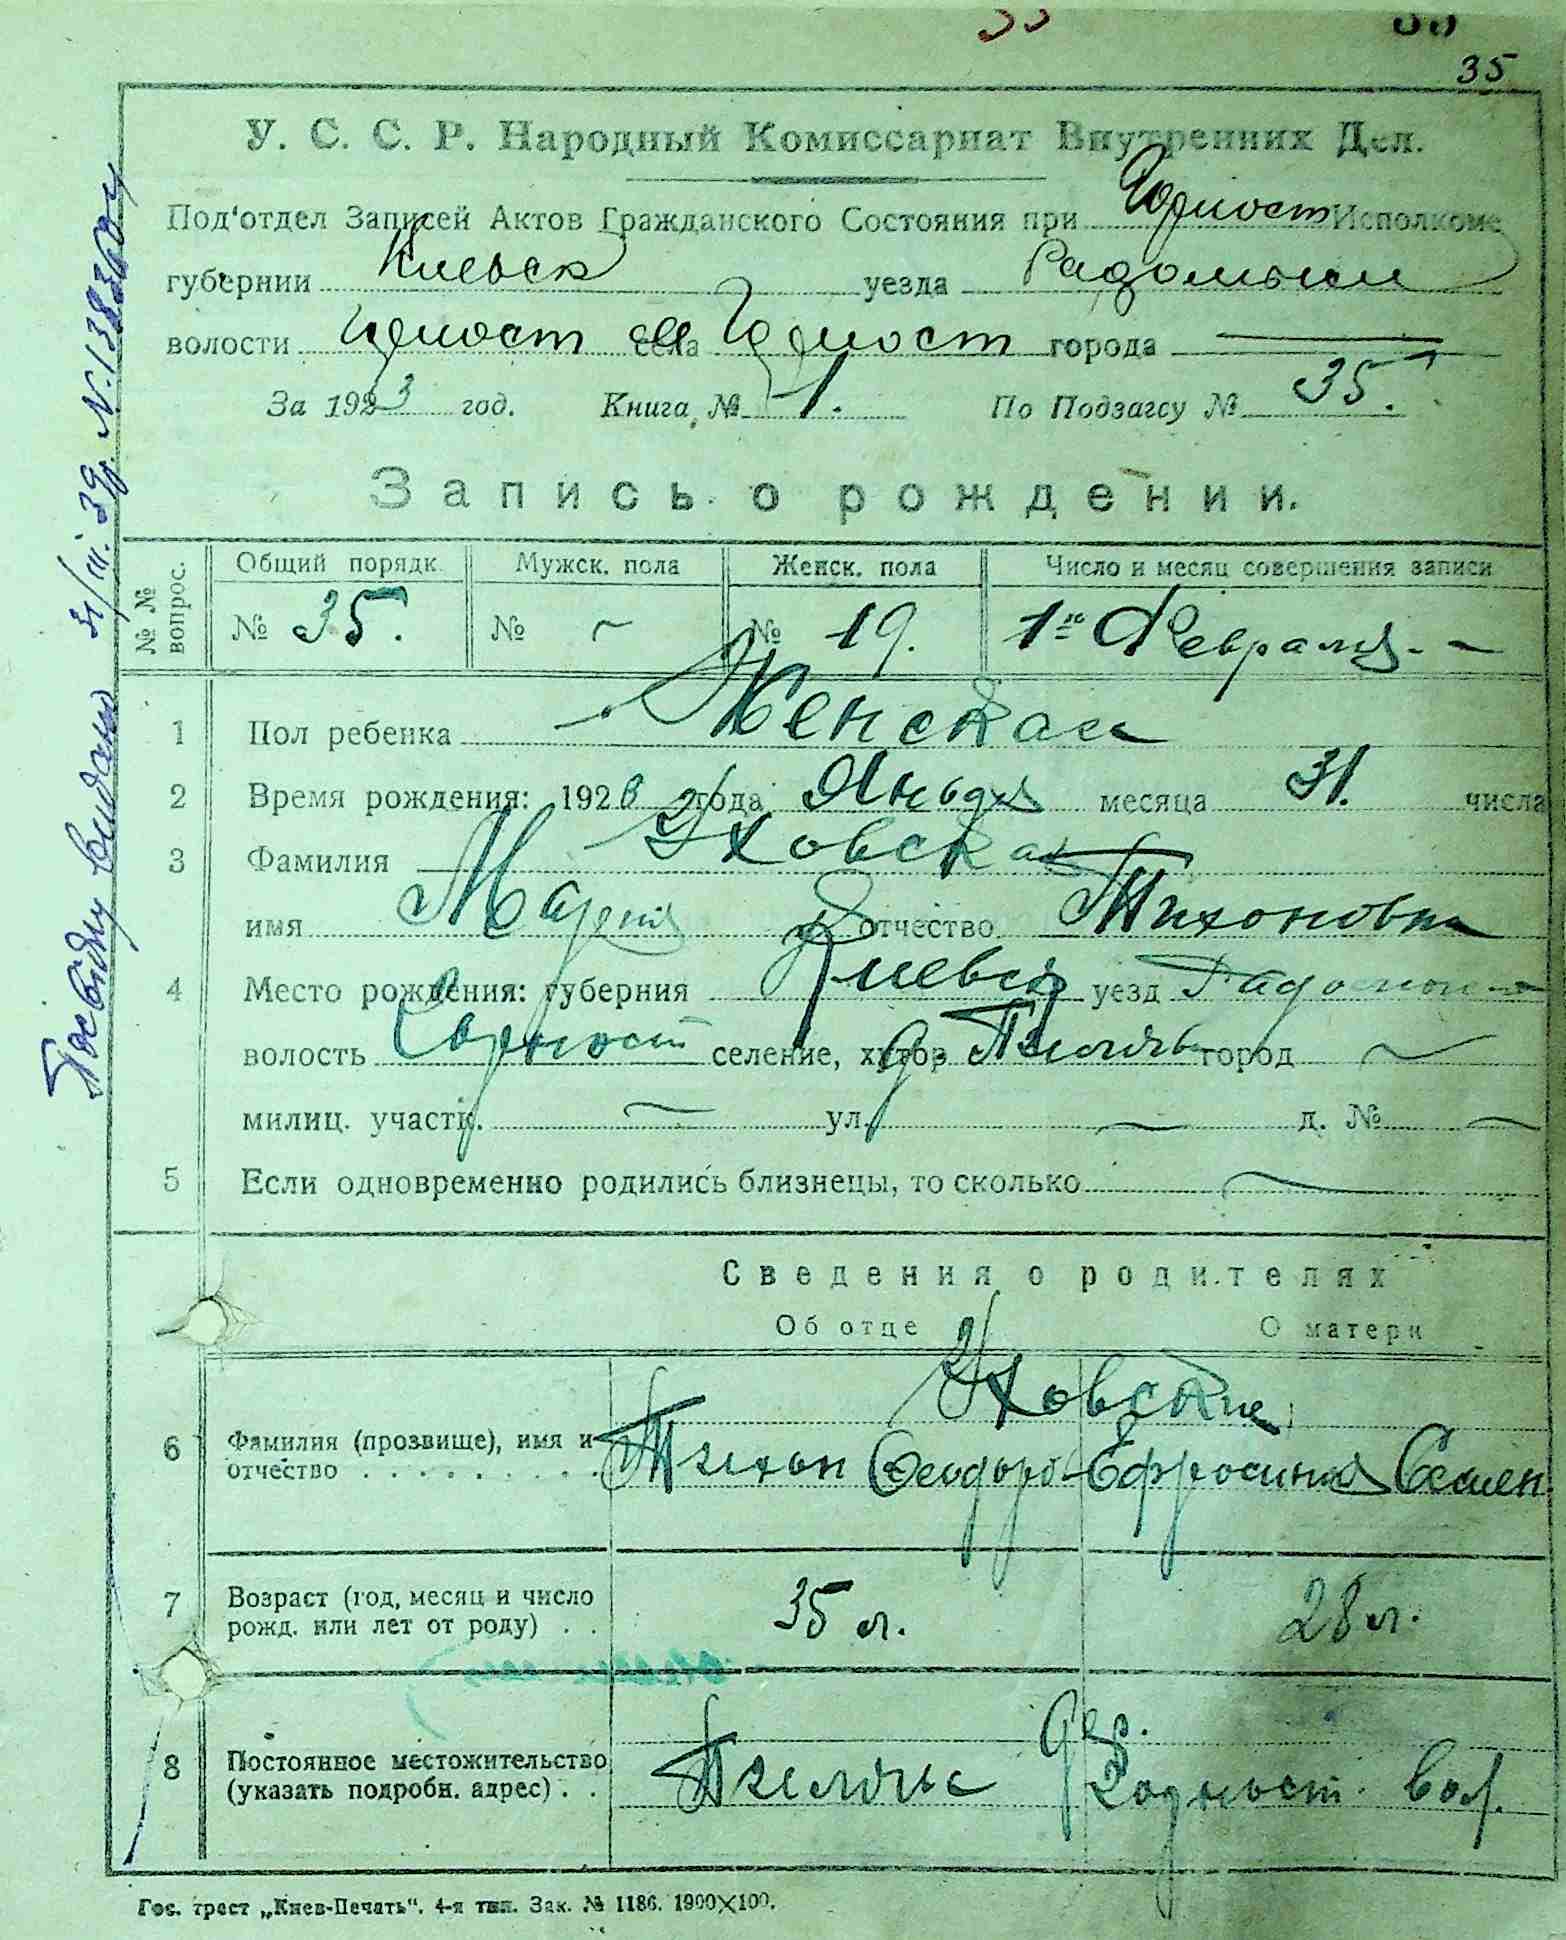 35
У. С. С. Р. Народный Комиссариат Внутренних Дел.
Под'отдел Записей Актов Гражданского Состояния при Исполкоме
губернии Киевск уезда Радомысл
волости села города —
За 1923 год. Книга № 1. По Подзагсу № 35.
Запись о рождении.
№№ вопрос. Общий порядк. Мужск. пола Женск. пола Число и месяц совершения записи
№ 35. № ~ № 19. 1го Февраля. -
1 Пол ребенка Женская
2 Время рождения: 1923 года Января месяца 31. числа
3 Фамилия Уховская
имя Мария отчество Тихоновна
4 Место рождения: губерния Киевск уезд
волость селение, хутор город ~
милиц. участк. ~ ул. ~ д. № ~
5 Если одновременно родились близнецы, то сколько ~
Сведения о родителях
Об отце О матери
Уховские
6 Фамилия (прозвище), имя и отчество Тихон Феодоров Ефросиния Семен
7 Возраст (год, месяц и число рожд. или лет от роду) 35 л. 28 л.
8 Постоянное местожительство (указать подробн. адрес)
дер.
вол.
Гос. трест „Киев-Печать". 4-я тип. Зак. № 1186. 1900×100.